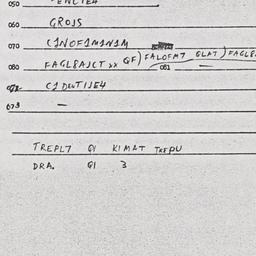 050
060 GROJS
070 C1NOF1M1N1M
080 FAGL8AJCT xx GF) FALOFM7 GLAT) FAGL8
081
C1 DEUTIJE4
073 —
TREPL7 GI KIMAT TREPU
DRA. GI 3